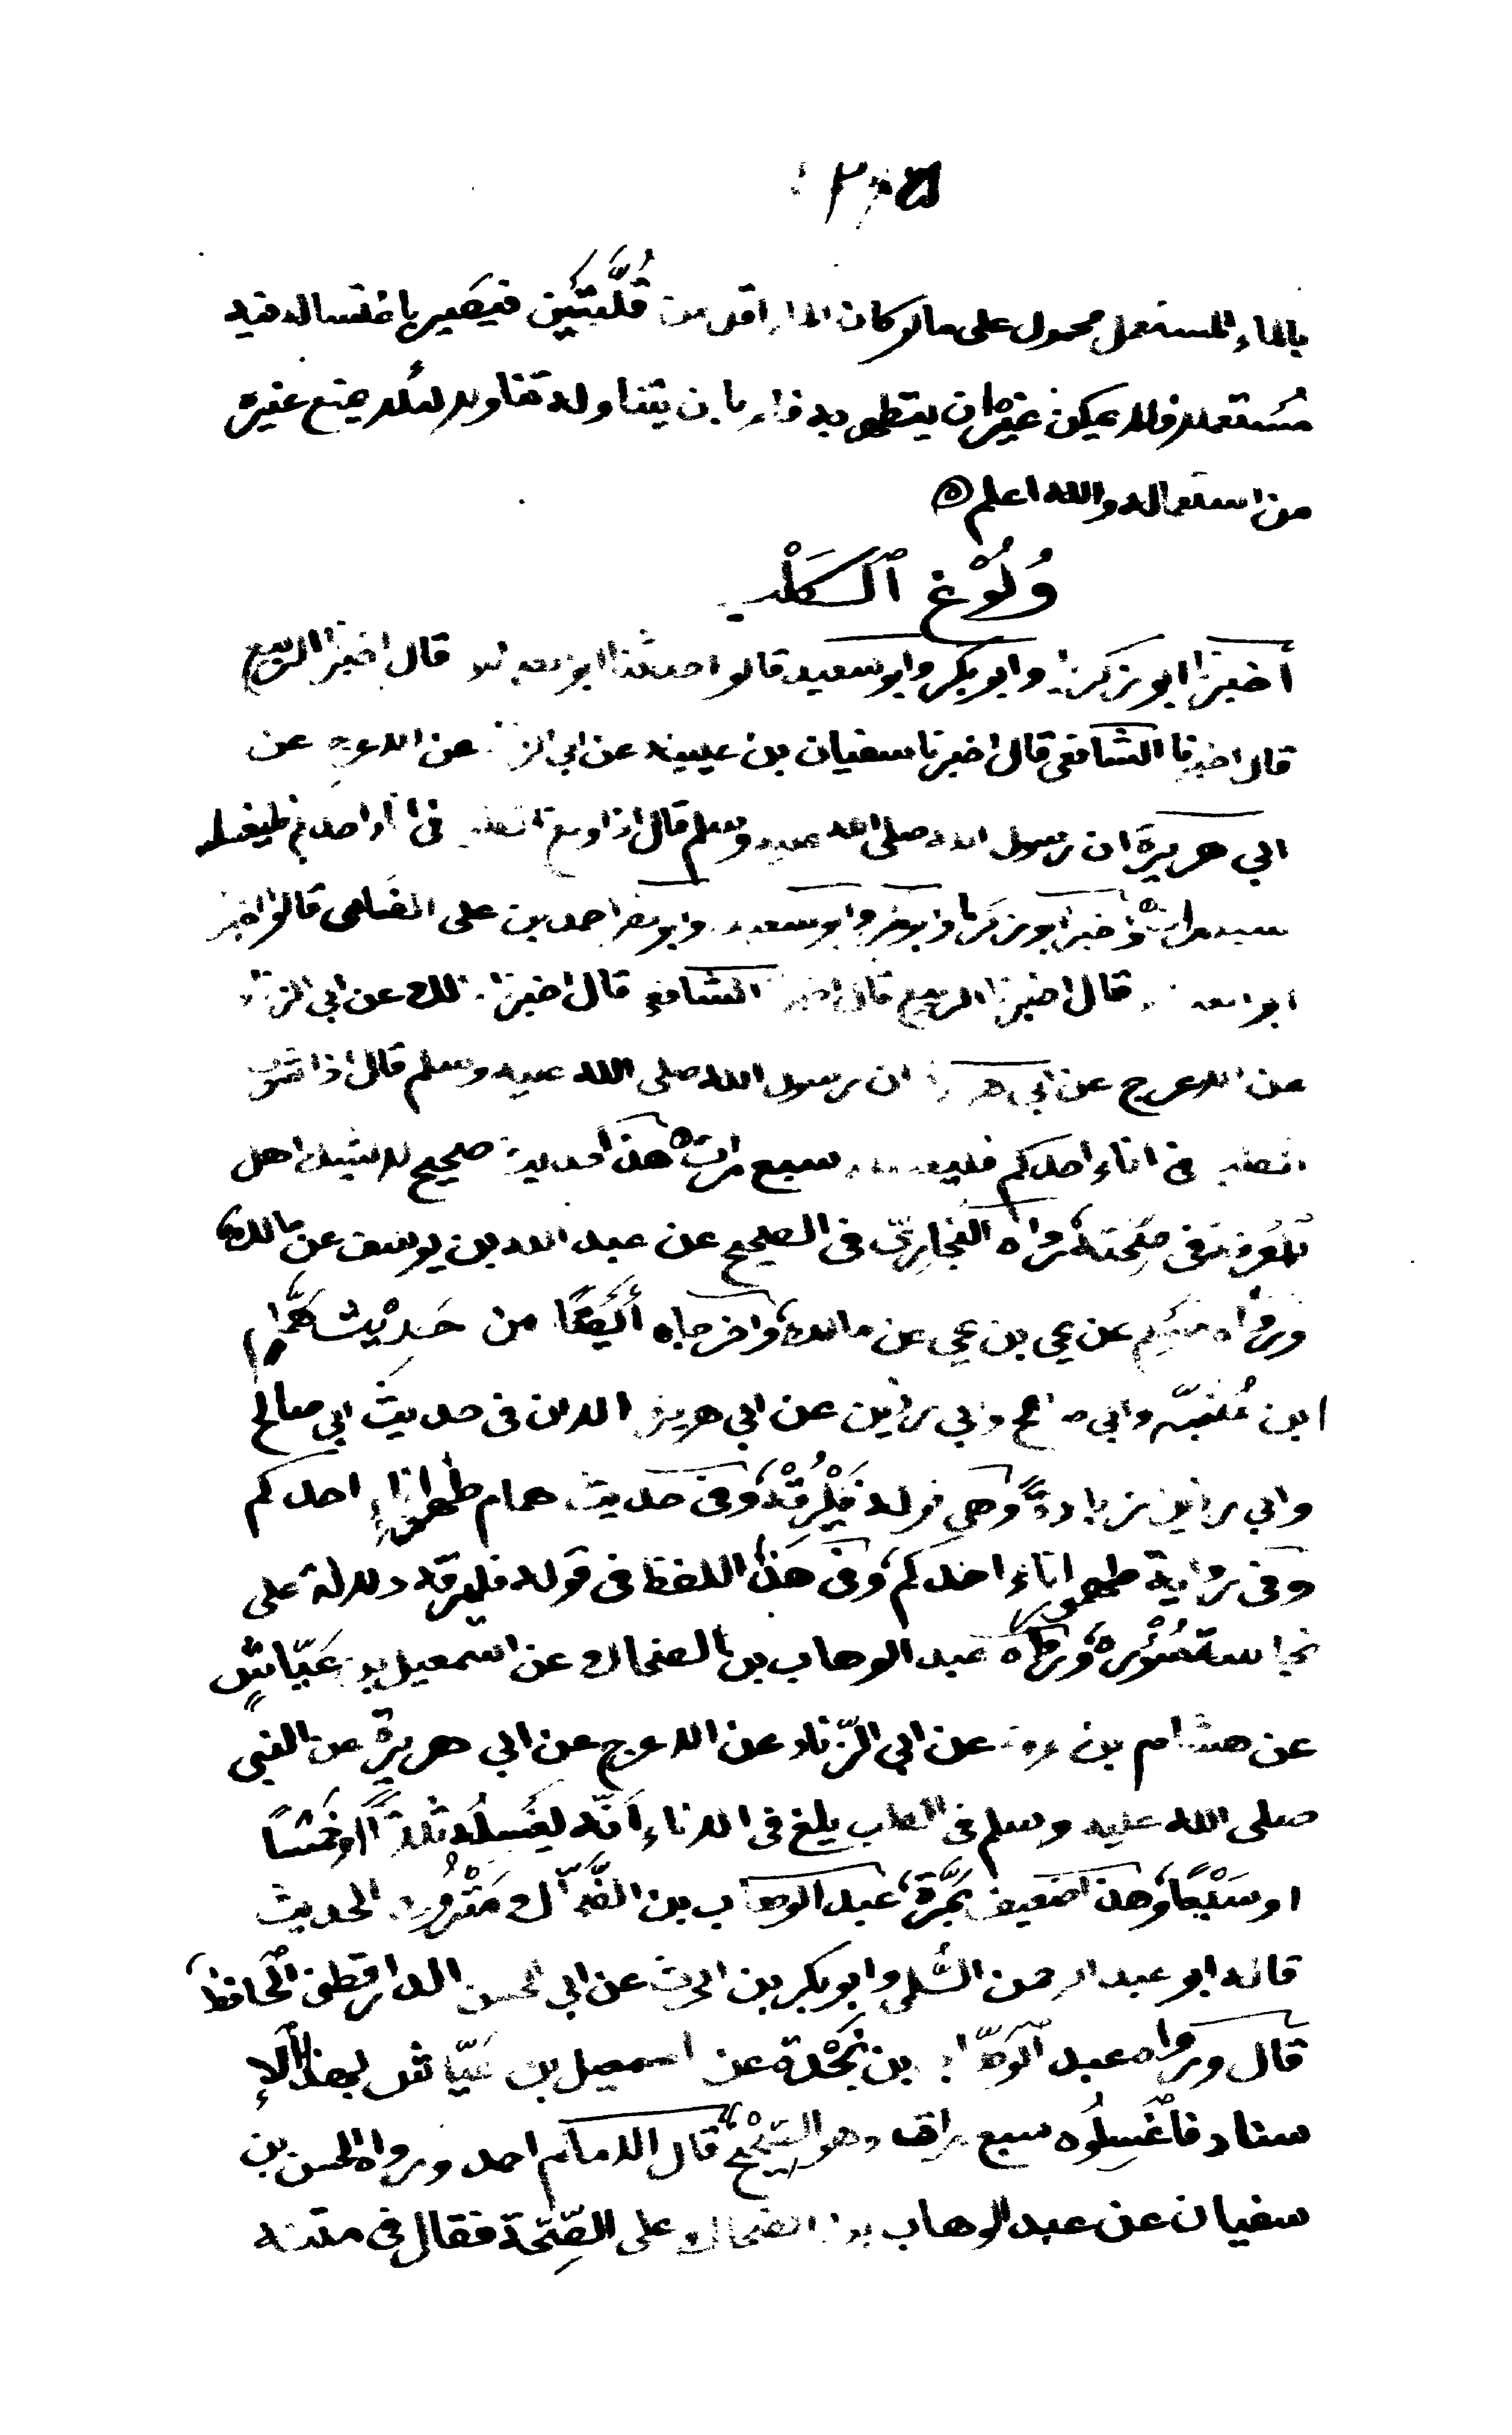 بالماء المستعمل محمول على ما لو كان الماء اقل من قُلَّتَين فيصَير باغتساله فيه
مُستعملا فلا يمكن غيره ان يتطهر به فامر بان يتناوله تناولا لئلا يمنع غيره
من استعماله والله اعلم ه
وُلُوْغ الكَلْب
أخبرنا ابو زكريا وابو بكر وابو سعيد قالوا حدثنا ابو العباس قال اخبرنا الربيع
قال اخبرنا الشافعى قال اخبرنا سفيان بن عيينه عن ابي الزناد عن الاعرج عن
ابي هريرة ان رسول الله صلى الله عليه وسلم قال اذا ولغ الكلب فى اناء احدكم فليغسله
سبع مرات ه واخبرنا ابو زكريا وابو بكر وابو سعيد وابو نصر احمد بن على الفامى قالوا اخبرنا
ابو العباس قال اخبرنا الربيع قال اخبرنا الشافعي قال اخبرنا مالك عن ابي الزناد
عن الاعرج عن ابي هريرة ان رسول الله صلى الله عليه وسلم قال اذا شرب
الكلب فى اناء احدكم فليغسله سبع مرات ه هذا حديث صحيح لا يشك اهل
المعرفة فى صِحَّته رواه البُخارِيّ فى الصحيح عن عبد الله بن يوسف عن مالك
ورواه مسلم عن يحيى بن يحيى عن مالك واخرجاه أيضًا من حَدِيْث همَّام
ابن مُنَبّه وابي صالح وابي رزين عن ابي هريرة الا ان فى حديث ابي صالح
وابي رزين زيادةً وهي قوله فَلْيُرِقْهُ وفى حديث همام طهور اناء احدكم
وفى رواية طهور اناء احدكم وفى هذا اللفظ فى قوله فليرقه دلالة على
نجاسة سُؤْره ورواه عبد الوهاب بن الضحاك عن اسمعيل بن عَيّاشٍ
عن هشام بن عروة عن ابي الزّناد عن الاعرج عن ابي هريرة عن النبي
صلى الله عليه وسلم فى الكلب يلغ فى الاناء اَنّه يغسِلُه ثلاثًا او خَمْسًا
او سَبْعًا وهذا ضعيف بمَرَّة عبد الوهاب بن الضَّحّاك مَتْرُوك الحديث
قاله ابو عبد الرحمن السُّلمي وابو بكر بن الحرث عن ابي الحسن الدارقطنى الحَافظ
قال ورواه عبد الوَهّاب بن نَجْدة عن اسمعيل بن عَيّاش بهذا الإ
سناد فاغسِلُوه سبع مرات وهو الصَّحِيْح قال الامام احمد ورواه الحسن بن
سفيان عن عبد الوهاب بن الضحاك على الصِّحّة فقال فى متنه